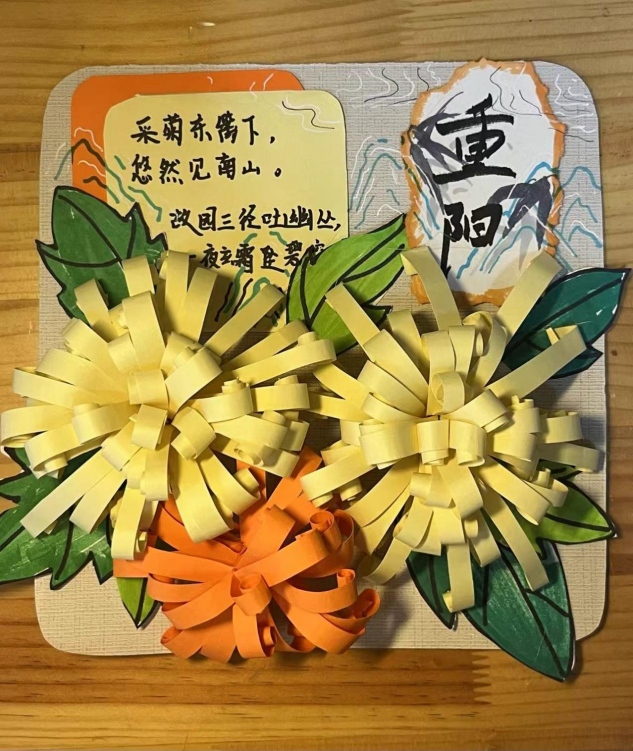 采菊东篱下，
悠然见南山。
故园三径吐幽丛，
一夜玄霜坠碧
重阳